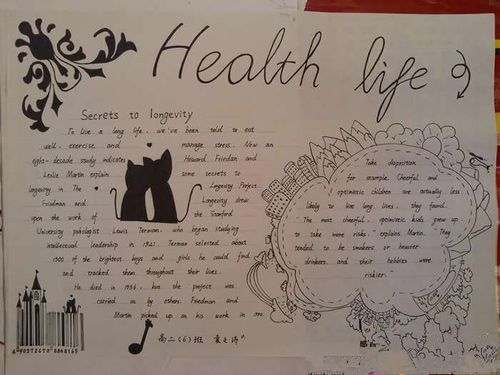 Health life
Secrets to longevity
To live a long life, we've been told to eat
well, exercise and manage stress. Now an
eight-decade study indicates Howard Friedan and
Leslie Martin explain some secrets to
longevity in The Longevity Project.
Friedman and Longevity drew
upon the work of the Stanford
University psychologist Lewis Terman, who began studying
intellectual leadership in 1921. Terman selected about
1500 of the brightest boys and girls he could find
and tracked them throughout their lives.
He died in 1956, but the project was
carried on by others. Friedman and
Martin picked up his work in 1990.
高二(6)班
Take disposition,
for example. Cheerful and
optimistic children are actually less
likely to live long lives, they found.
"The most cheerful, optimistic kids grew up
to take more risks," explains Martin. "They
tended to be smokers or heavier
drinkers, and their hobbies were
riskier."